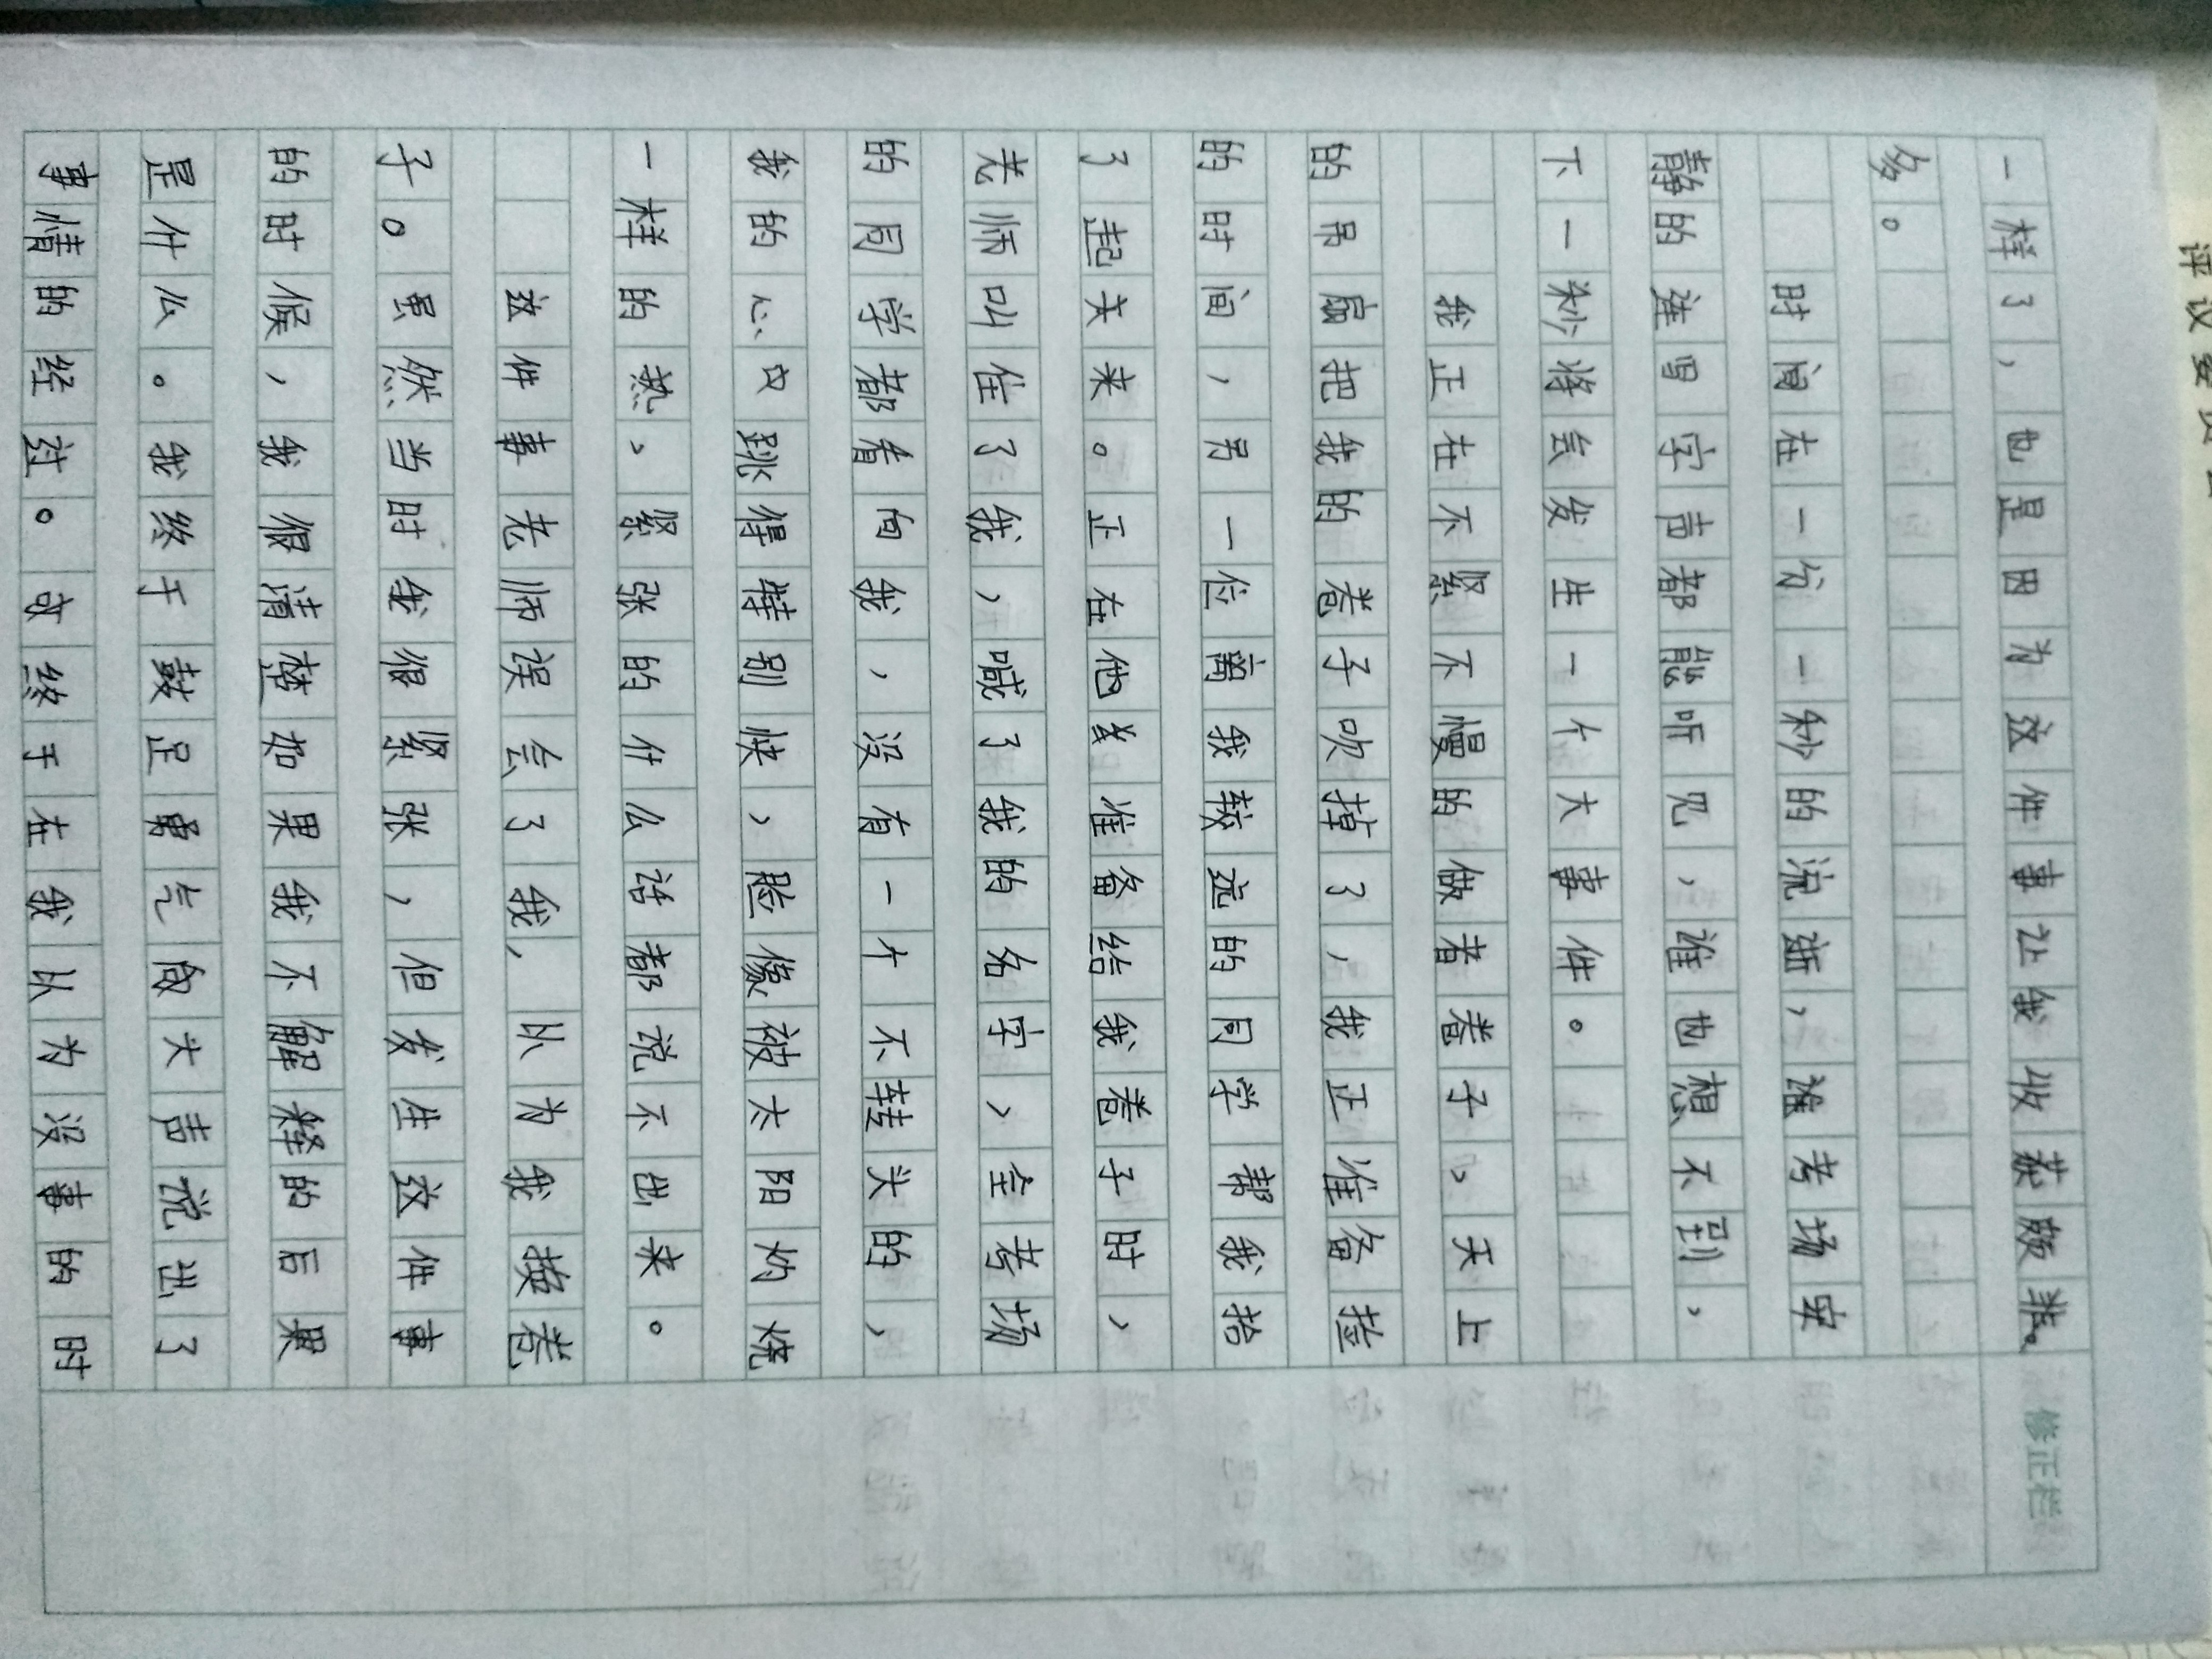 评议委员
一样了，也是因为这件事让我收获颇非。
修正栏
多。
时间在一份一秒的流逝，谁考场安
静的连写字声都能听见，谁也想不到，
下一秒将会发生一个大事件。
我正在不紧不慢的做着卷子，天上
的吊扇把我的卷子吹掉了，我正准备捡
的时间，另一位离我较远的同学帮我拾
了起来。正在他准备给我卷子时，
老师叫住了我，喊了我的名字，全考场
的同学都看向我，没有一个不转头的，
我的心中跳得特别快，脸像被太阳灼烧
一样的热，紧张的什么话都说不出来。
这件事老师误会了我，以为我换卷
子。虽然当时我很紧张，但发生这件事
的时候，我很清楚如果我不解释的后果
是什么。我终于鼓足勇气向大声说出了
事情的经过。我终于在我以为没事的时